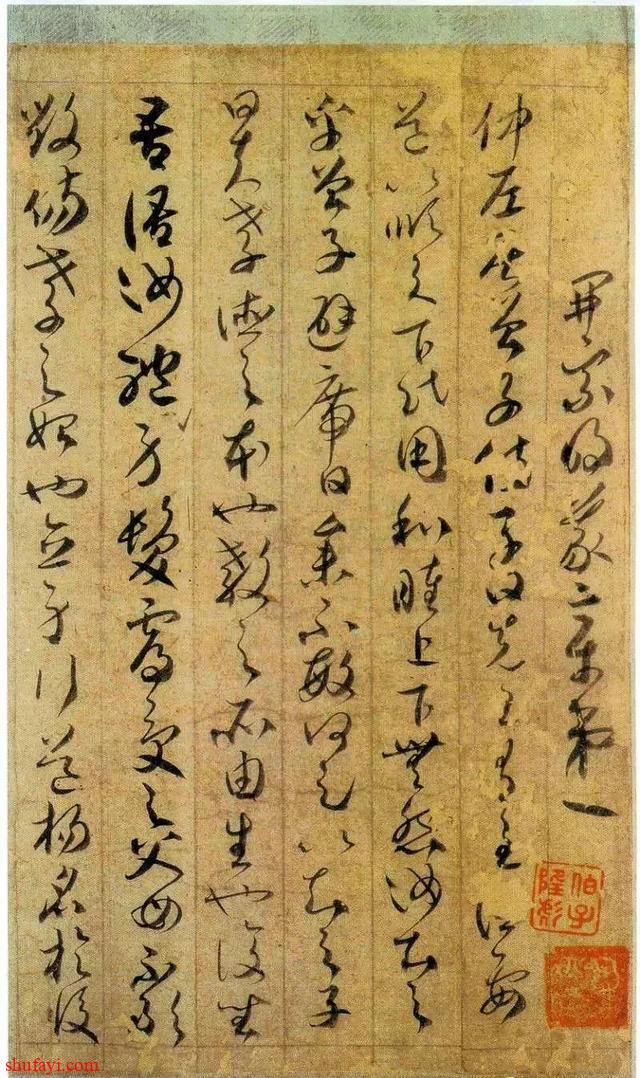 開宗明義章第一
仲尼居曾子侍子曰先王有至德要
道以順天下民用和睦上下無怨汝知之
乎曾子避席曰參不敏何足以知之子
曰夫孝德之本也教之所由生也復坐
吾語汝體身髮膚受之父母不敢
毀傷孝之始也立身行道揚名於後
shufayi.com